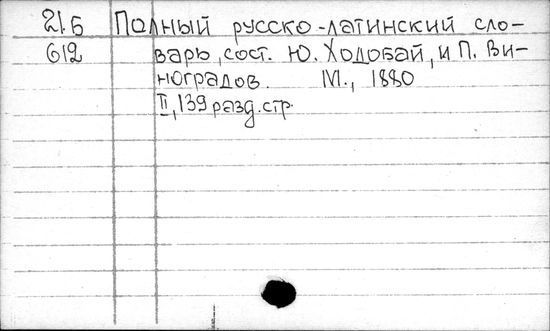 21.Б Полный русско-латинский сло-
612 варь, сост. Ю. Ходобай, и П. Ви-
ноградов. М., 1880
II, 139 разд. стр.